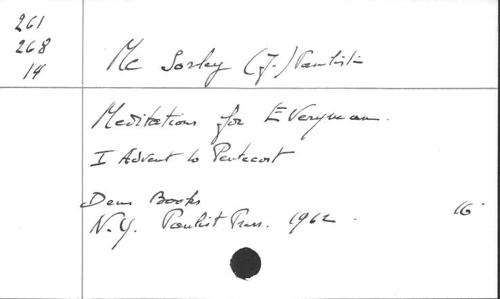 261
268
14
Mc Sorley (J.) Paulist
Meditations for Everyman.
I Advent to Pentecost
Deus Books
N.Y. Paulist Press. 1962.
16